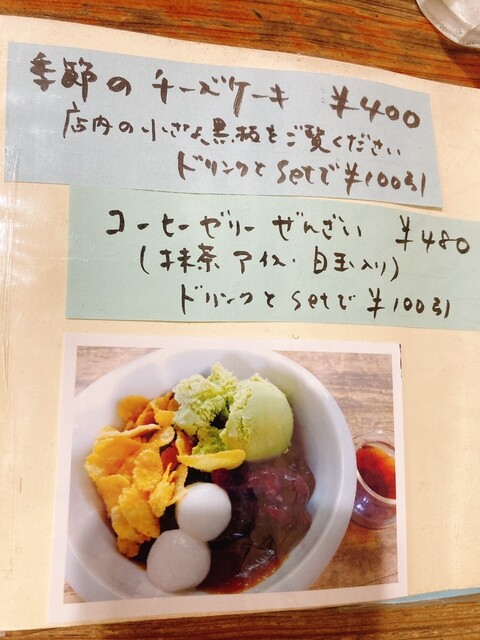 季節の チーズケーキ ¥400
店内の小さな黒板をご覧ください
ドリンクと setで ¥100引
コーヒーゼリー ぜんざい ¥480
(抹茶 アイス・白玉入り)
ドリンクと setで ¥100引